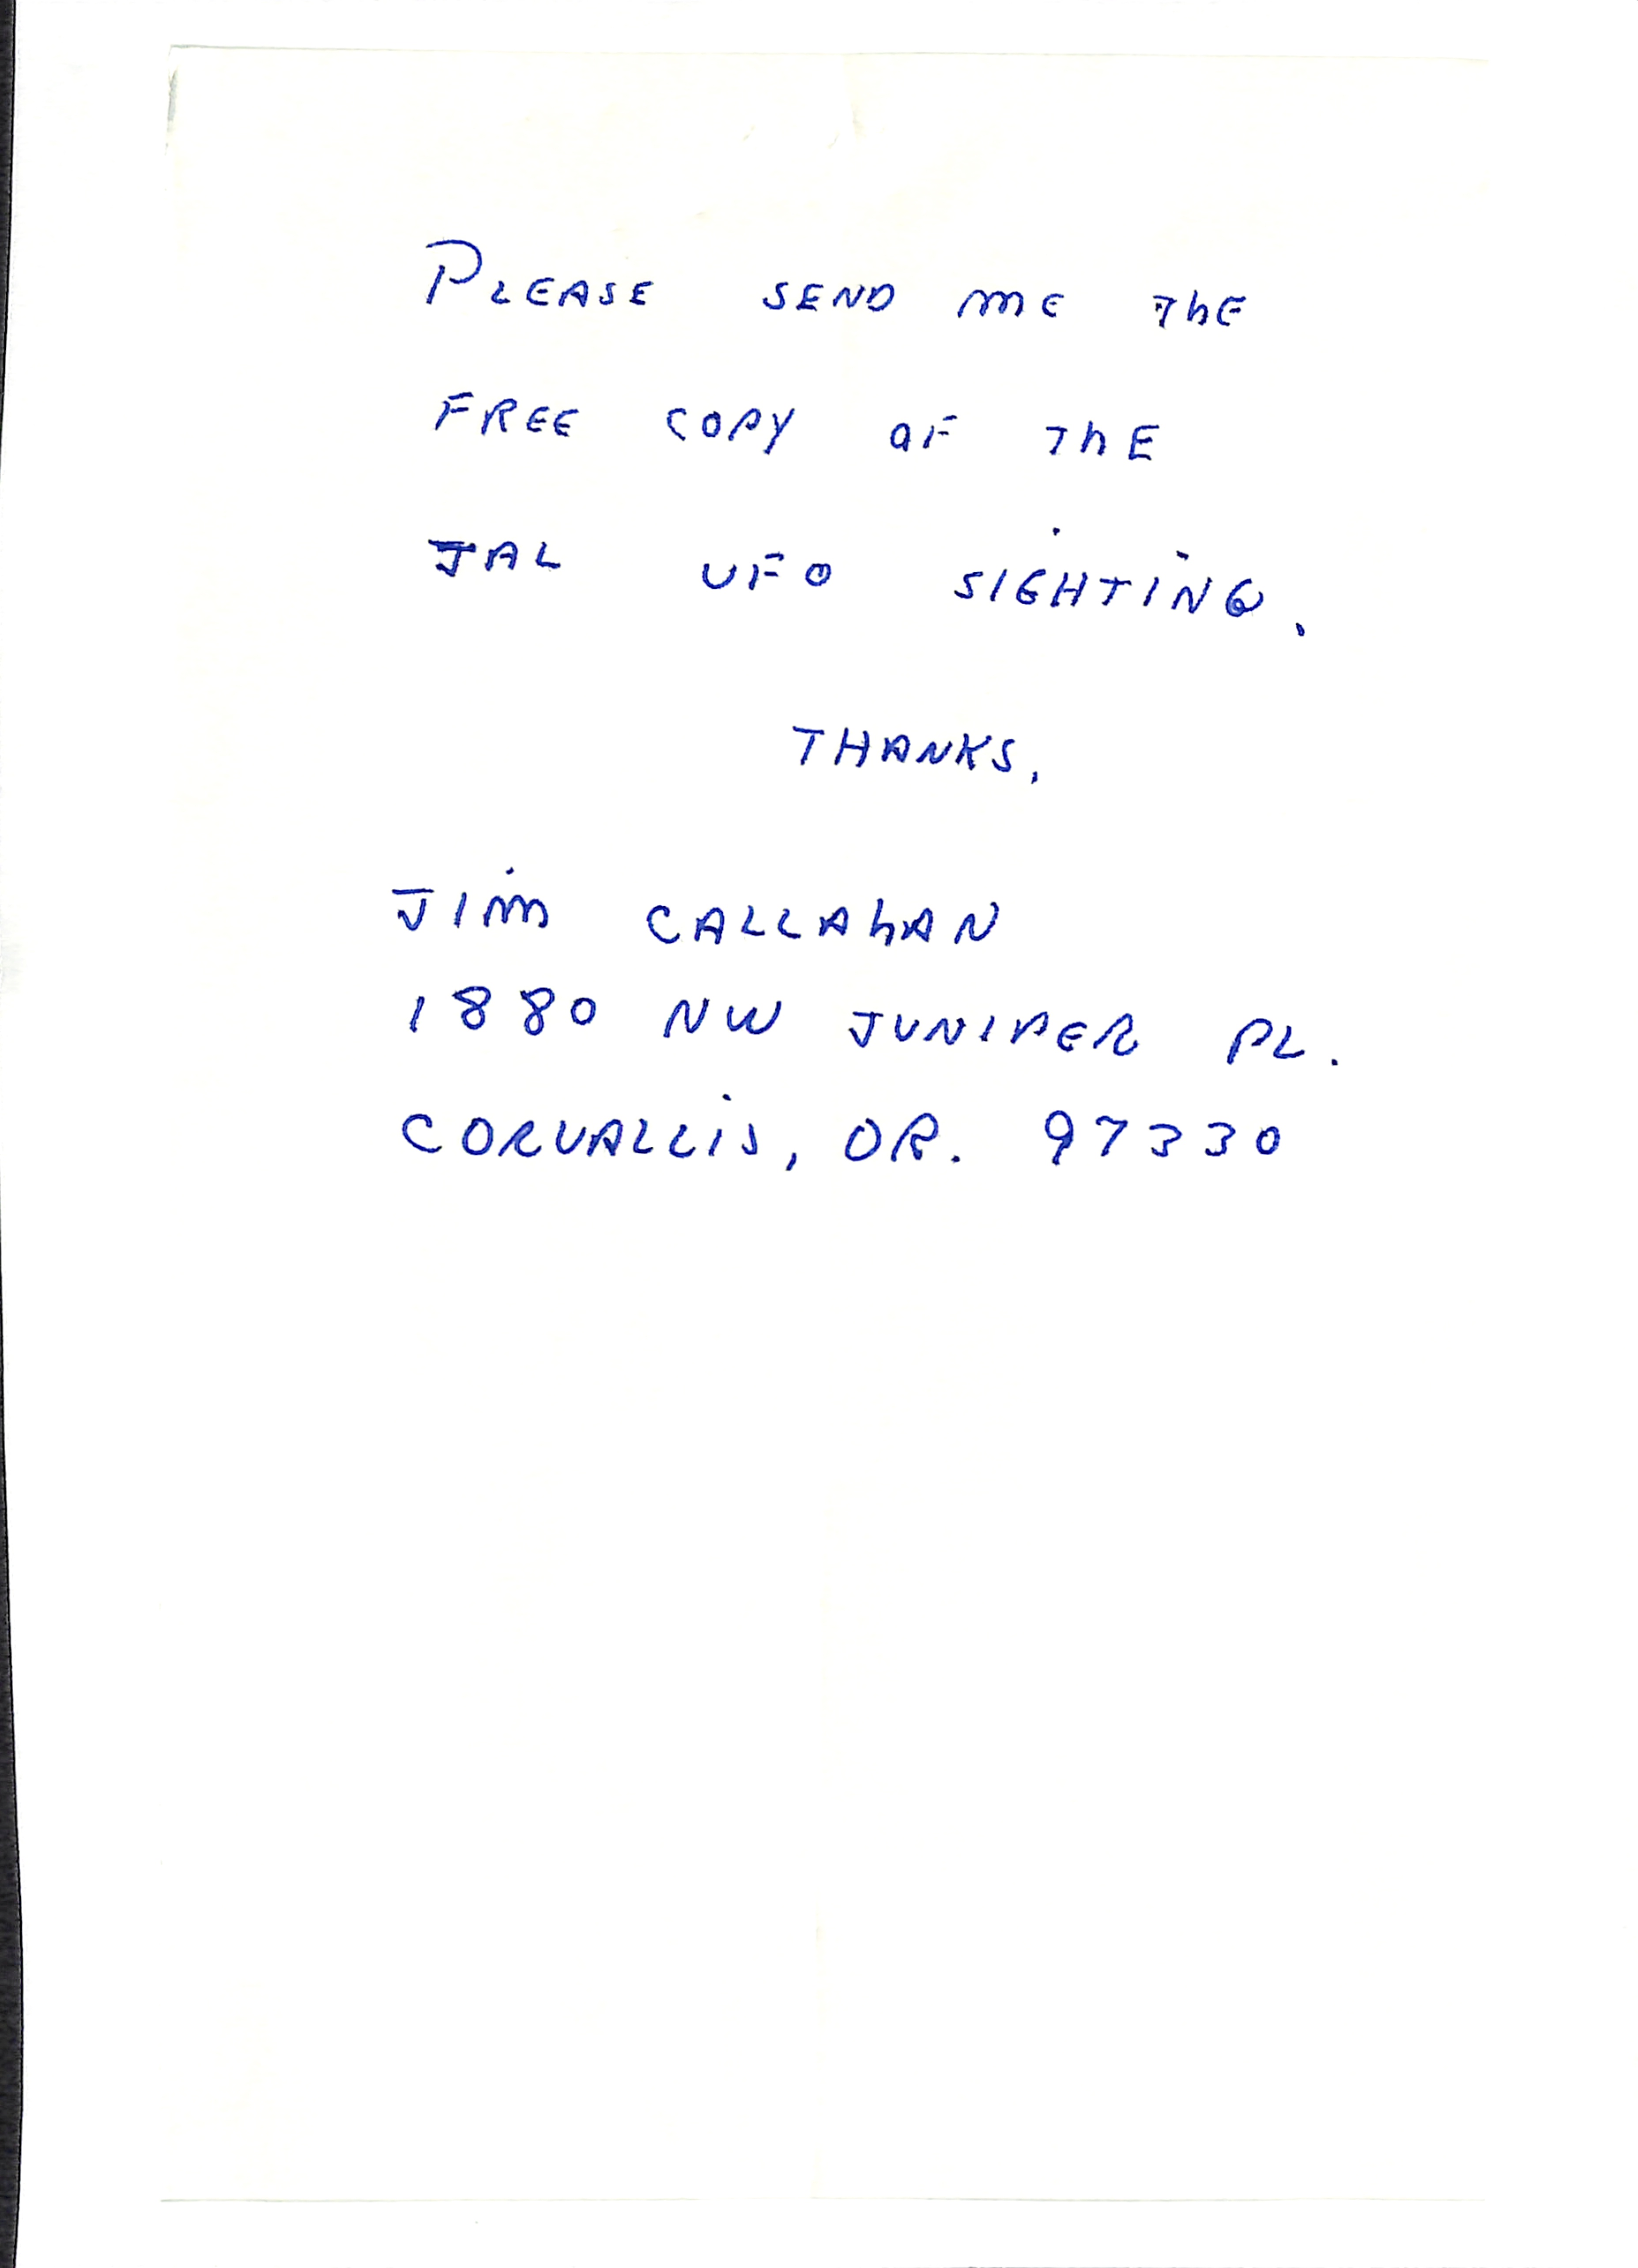 PLEASE SEND ME THE
FREE COPY OF THE
JAL UFO SIGHTING.
THANKS,
JIM CALLAHAN
1880 NW JUNIPER PL.
CORVALLIS, OR. 97330